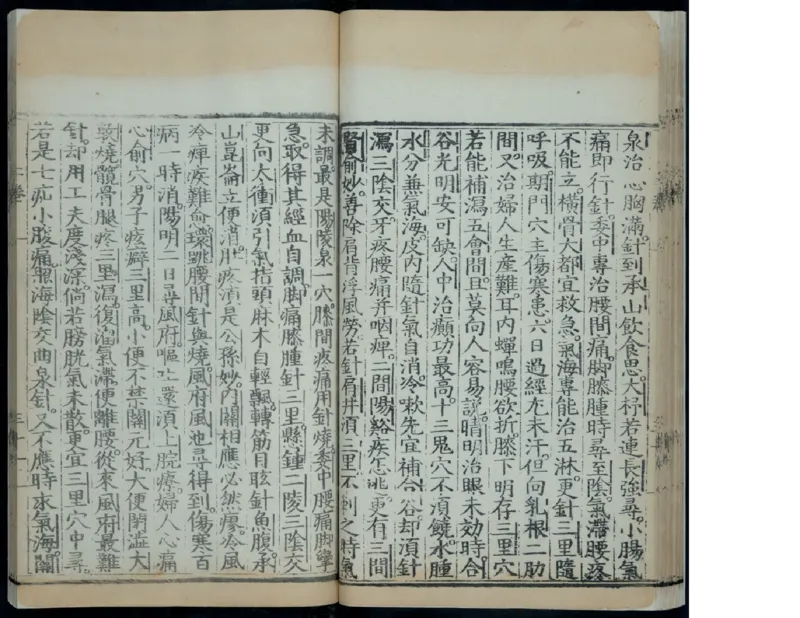 泉治心胸滿針到承山飲食思大杼若連長強尋小腸氣
痛即行針委中專治腰間痛脚膝腫時尋至陰氣滯腰疼
不能立橫骨大都宜救急氣海專能治五淋更針三里隨
呼吸期門穴主傷寒患六日過經尤未汗但向乳根二肋
間又治婦人生產難耳內蟬鳴腰欲折膝下明存三里穴
若能補瀉五會間且莫向人容易說睛明治眼未効時合
谷光明安可缺人中治癲功最高十三鬼穴不須饒水腫
水分兼氣海皮內隨針氣自消冷嗽先宜補合谷却須針
瀉三陰交牙疼腰痛并咽痺二間陽谿疾怎逃更有三間
腎俞妙善除肩背浮風勞若針肩井須三里不刺之時氣
未調最是陽陵泉一穴膝間疼痛用針燒委中腰痛脚攣
急取得其經血自調脚痛膝腫針三里懸鍾二陵三陰交
更向太衝須引氣指頭麻木自輕飄轉筋目眩針魚腹承
山崑崙立便消肚疼須是公孫妙內關相應必然瘳冷風
冷痺疾難愈環跳腰間針與燒風府風池尋得到傷寒百
病一時消陽明二日尋風府嘔吐還須上脘療婦人心痛
心俞穴男子痃癖三里高小便不禁關元好大便閉澁大
敦燒髖骨腿疼三里瀉復溜氣滯便離腰從來風府最難
針却用工夫度淺深倘若膀胱氣未散更宜三里穴中尋
若是七疝小腹痛照海陰交曲泉針又不應時求氣海關